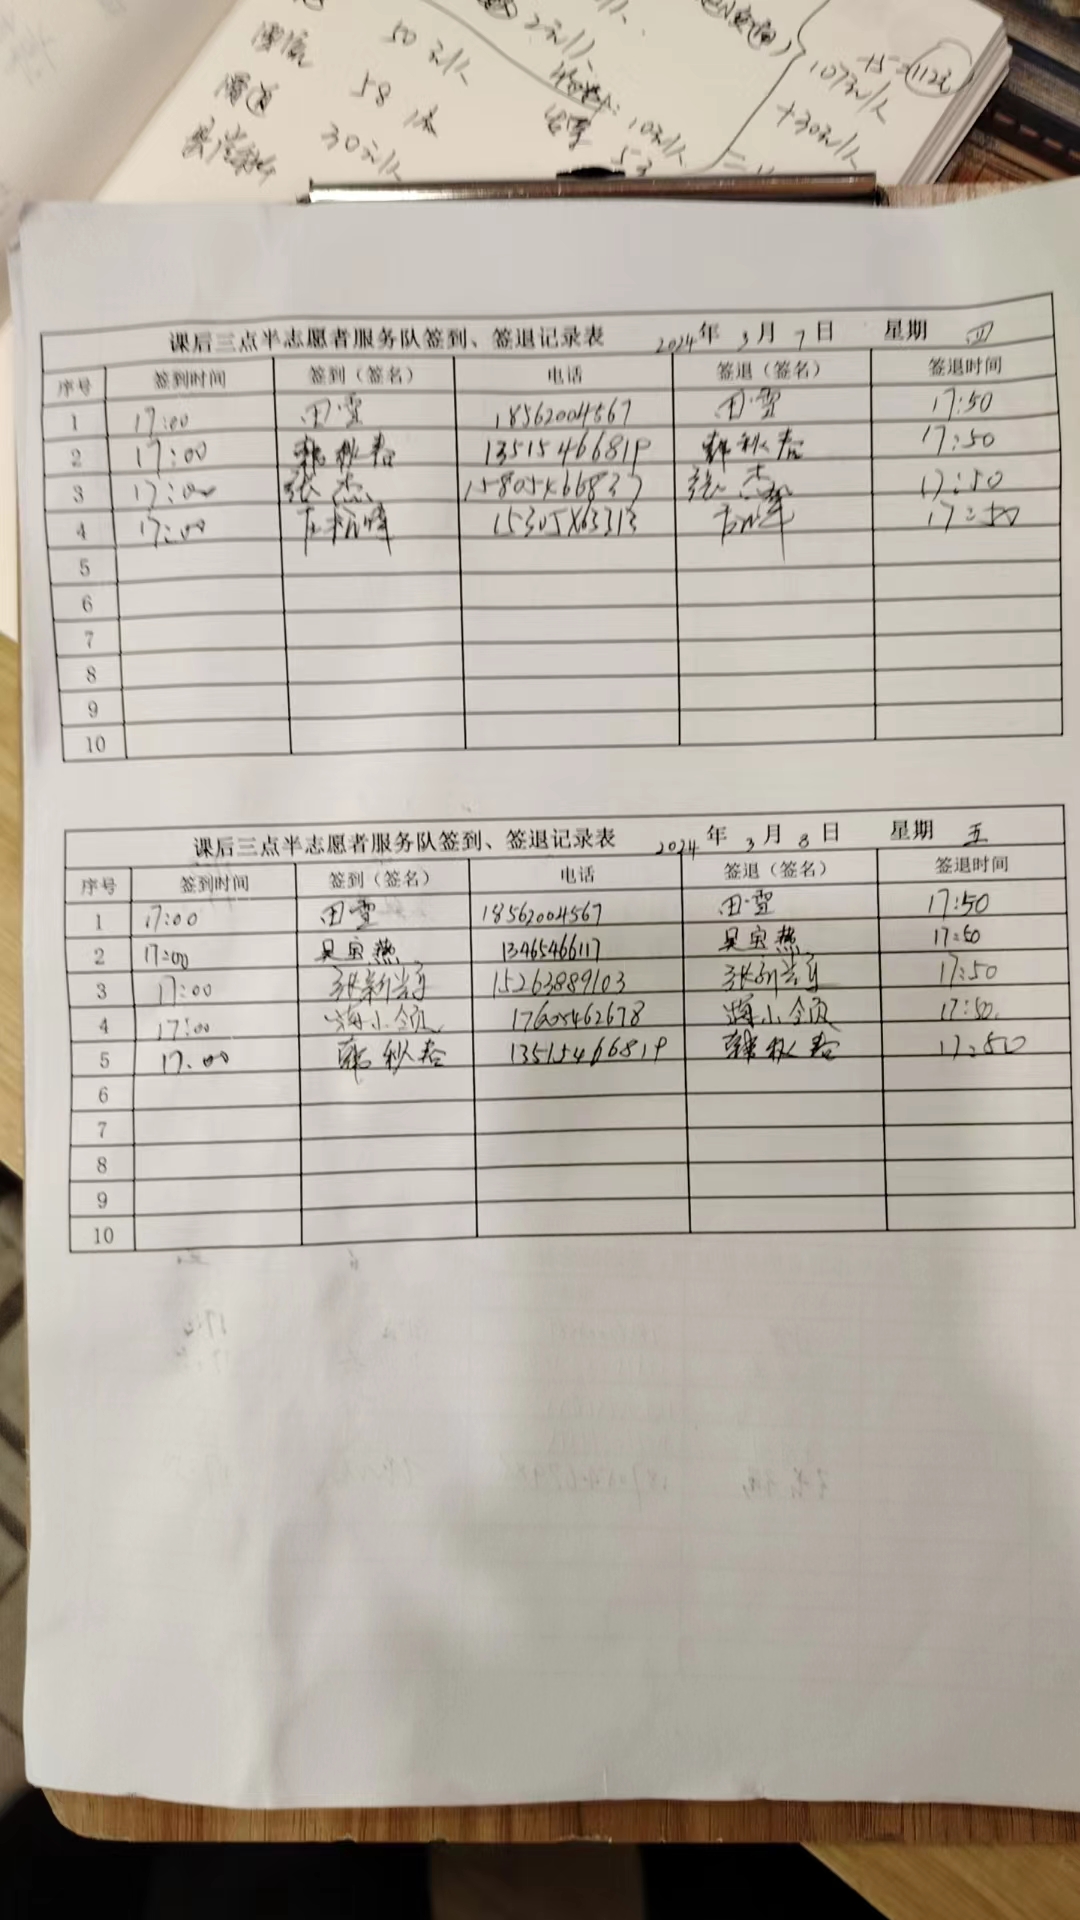 50元/人
2元/人
58
30元/人
10元/人
53
107元/人
+30元/人
课后三点半志愿者服务队签到、签退记录表 2024年 3月 7日 星期 四
序号 签到时间 签到（签名） 电话 签退（签名） 签退时间
1 17:00 田雪 18562004567 田雪 17:50
2 17:00 韩秋春 13515466819 韩秋春 17:50
3 17:00 张杰 张杰 17:50
4 17:00 17:50
5
6
7
8
9
10
课后三点半志愿者服务队签到、签退记录表 2024年 3月 8日 星期 五
序号 签到时间 签到（签名） 电话 签退（签名） 签退时间
1 17:00 田雪 18562004567 田雪 17:50
2 17:00 吴宝燕 13465466117 吴宝燕 17:50
3 17:00 15263889103 17:50
4 17:00 17605462678 17:50
5 17:00 韩秋春 13515466819 韩秋春 17:50
6
7
8
9
10